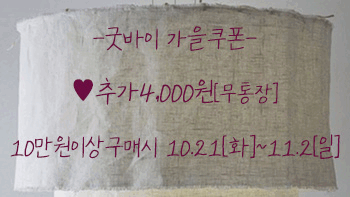 -굿바이 가을쿠폰-
♥추가4,000원[무통장]
10만원이상구매시 10.21[화]~11.2[일]